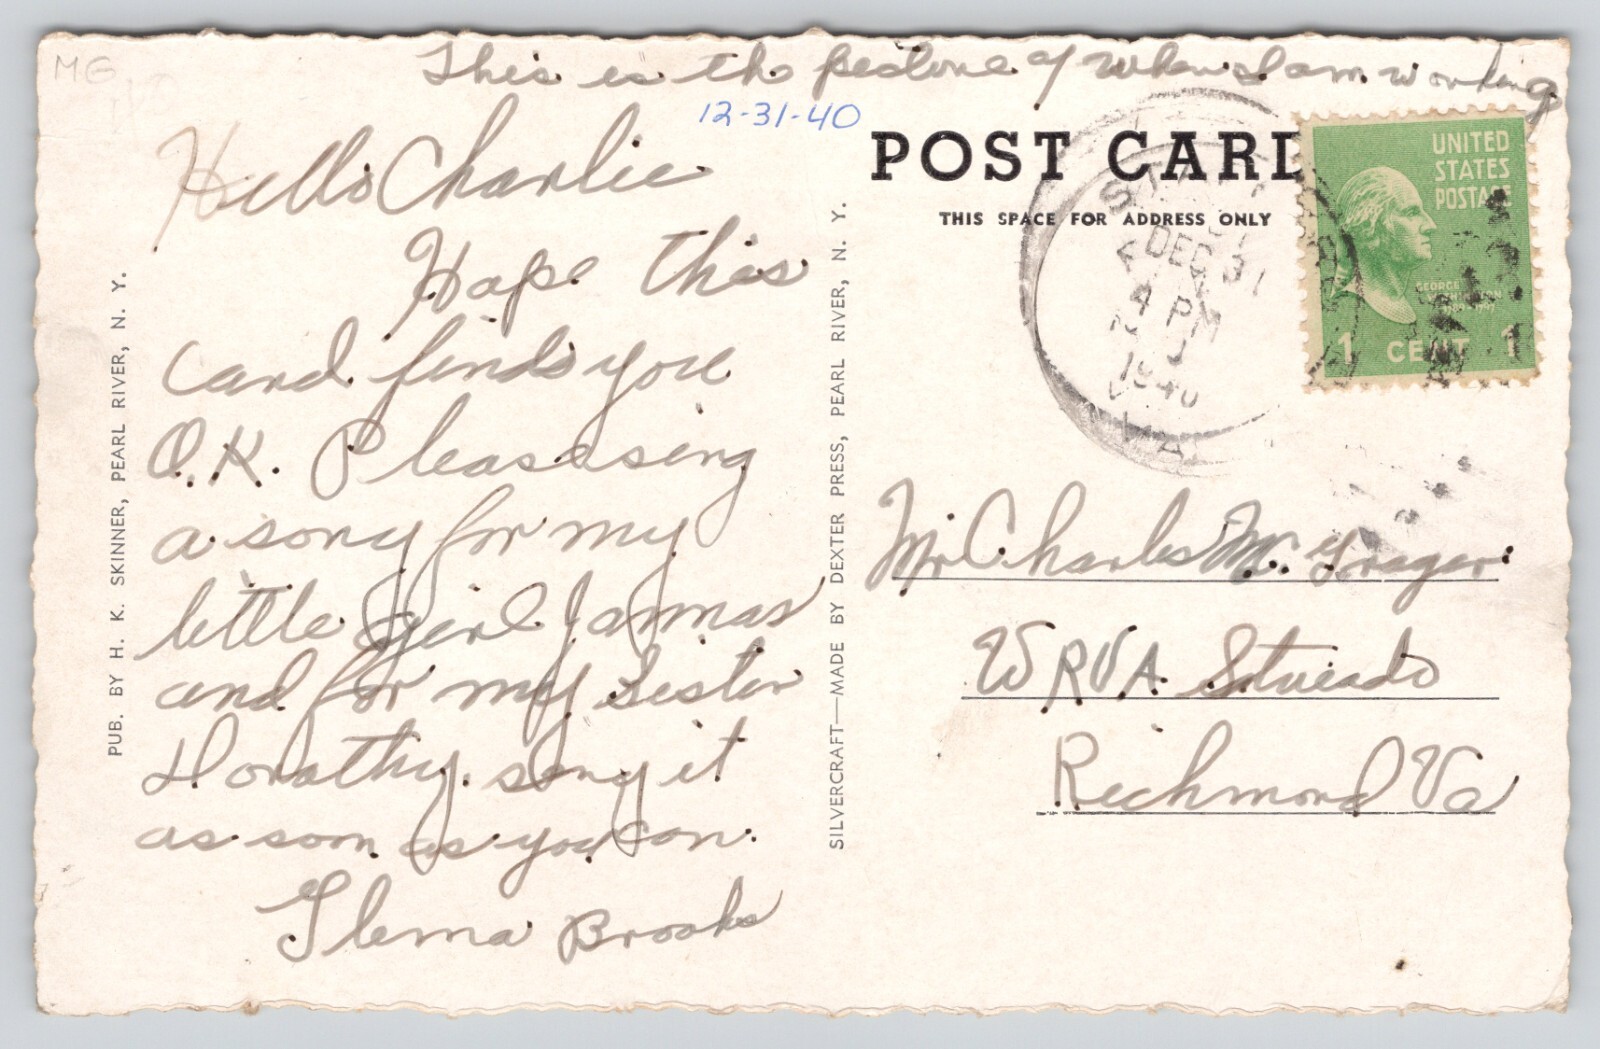 MG
This is the pesture of when I am working
12-31-40
Hello Charlie
Hope this
Card finds you
O.K. Please sing
a song for my
little girl Jannas
and for my sister
Dorathy. song it
as soon as you can.
Glema Brooks
PUB. BY H. K. SKINNER, PEARL RIVER, N. Y.
SILVERCRAFT—MADE BY DEXTER PRESS, PEARL RIVER, N. Y.
POST CARD
THIS SPACE FOR ADDRESS ONLY
DEC 31
4 PM
1940
VA.
UNITED
STATES
POSTAGE
GEORGE
WASHINGTON
1 CENT 1
Mr Charles Mc. Grager
WRVA Stueado
Richmond Va